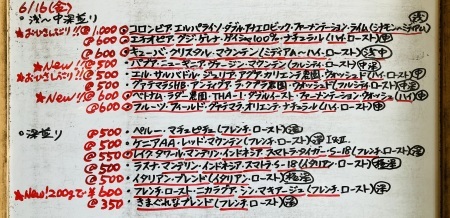 6/16(金)
浅〜中深煎り
★おひさしぶり!! @1,000 コロンビア・エルパライソ・ダブルアナエロビック・ファーメンテーション・ライム(シナモン〜ミディアム) 浅
@600 エチオピア・グジ・ゲレナ・ゲイシャ100%・ナチュラル(ハイ・ロースト) 中
@600 キューバ・クリスタル・マウンテン(ミディアム〜ハイ・ロースト) 浅中
@500 パプア・ニューギニア・ヴァージン・マウンテン(フルシティ・ロースト) 中深
★おひさしぶり!! @500 エル・サルバドル・ジュリア・アグア・カリエンテ農園・ウォッシュド(ハイ・ロースト) 中
@500 グァテマラSHB・アンティグア・ラ・クプラ農園・ウォッシュド(フルシティ・ロースト) 中深
★New!! @600 ベトナム・ラダー農園・THA-1・ダブルルースト・ファーメンテーション・ウォッシュド(ハイ・ロースト) 中
@600 フルーツ・フィールド・グァテマラ・オリエンテ・ナチュラル(ハイ・ロースト) 中
深煎り
@500 ペルー・マチュピチュ(フレンチ・ロースト) 深
@500 ケニアAA・レッド・マウンテン(フレンチ・ロースト) 深
@550 レイク・タワール・マンデリン・インドネシア・スマトラ・タイガー・S-18(フレンチ・ロースト) 深
@500 ラスナ・マンデリン・インドネシア・スマトラ・S-18(イタリアン・ロースト) 極深
@500 イタリアン・ブレンド(イタリアン・ロースト) 極深
★New!200gまで ¥600 フレンチ・ロースト・ニカラグア・ジン・マリアージュ(フレンチ・ロースト) 深
@350 きまぐれなブレンド(フレンチ・ロースト) 深